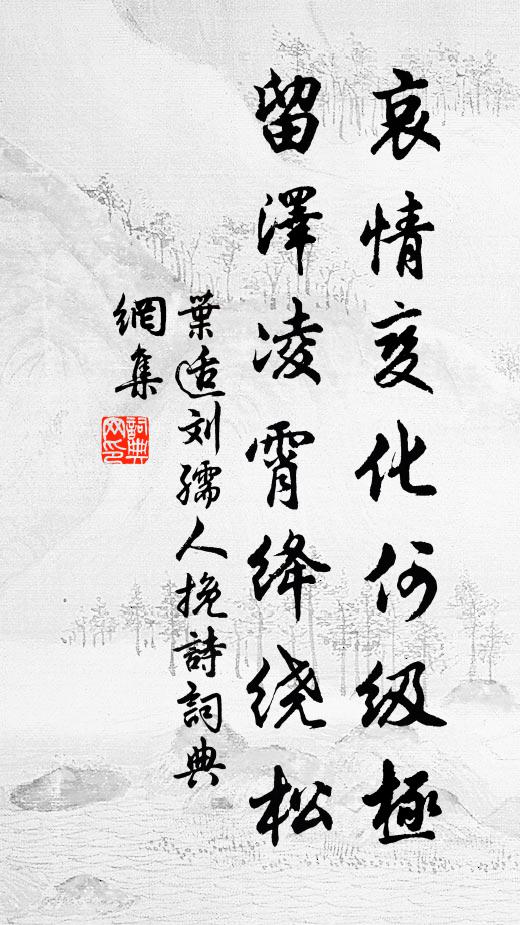 哀情变化何级極
留澤凌霄绛绕松
葉适刘孺人挽詩詞典
網集
詞典
网印